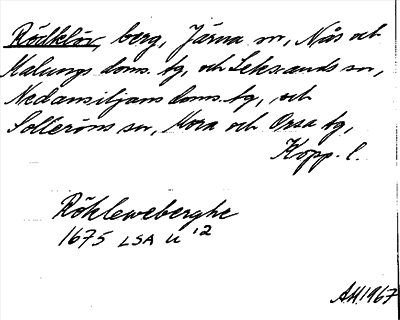 Rödklöv, berg, Järna sn, Nås och
Malungs doms. tg, och Leksands sn,
Nedansiljans doms. tg, och
Solleröns sn, Mora och Orsa tg,
Kopp. l.
Rökleweberghe
1675 LSA U 12
AH. 1967